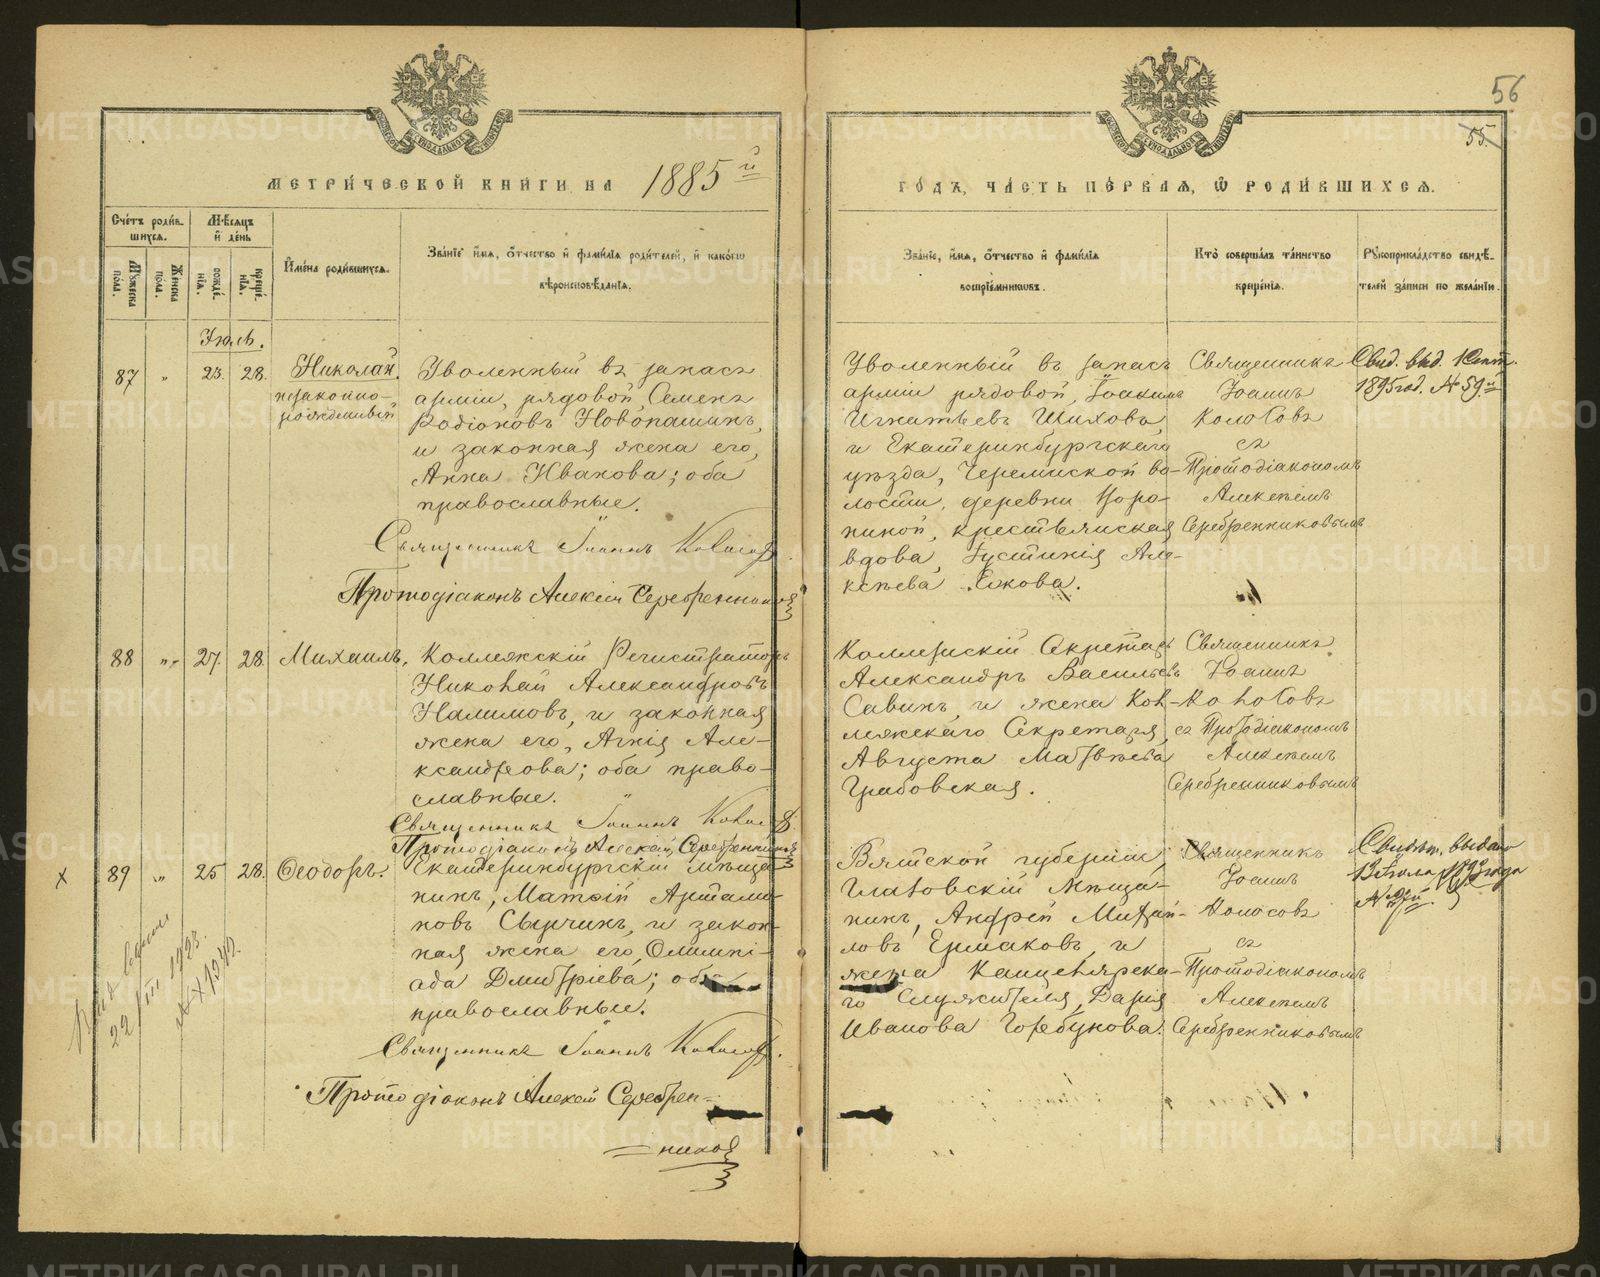 56
55.
МЕТРИЧЕСКОЙ КНИГИ НА 1885й
ГОДЪ, ЧАСТЬ ПЕРВАЯ, Ѡ РОДИВШИХСЯ.
Счетъ родившихся.
Мужеска пола.
Женска пола.
Мѣсяцъ и день
рожденія.
крещенія.
Имена родившихся.
Званіе имя, отчество и фамилія родителей, и какогѡ
вѣроисповѣданія.
Званіе, имя, отчество и фамилія
воспріемникѡвъ.
Кто совершалъ таинство
крещенія.
Рукоприкладство свидѣтелей записи по желанію.
Іюль.
87 „ 23. 28. Николай.
незаконно-
рожденный
Уволенный въ запасъ
арміи, рядовой Семенъ
Родіоновъ Новопашинъ,
и законная жена его,
Анна Иванова; оба
православные.
Священникъ Іоаннъ Колосовъ.
Протодіаконъ Алексій Серебренниковъ
Уволенный въ запасъ
арміи рядовой, Іоакимъ
Игнатьевъ Шихова,
и Екатеринбургскаго
уѣзда, Черемиской во-
лости, деревни Воро-
ниной, крестьянская
вдова, Іустинія Але-
ксѣева Ежова.
Священникъ
Іоаннъ
Колосовъ
съ
Протодіакономъ
Алексѣемъ
Серебренниковымъ
Свид. выд. 1 Сент.
1895 год. № 59й
88 „ 27. 28. Михаилъ.
Коллежскій Регистраторъ
Николай Александровъ
Налимовъ, и законная
жена его, Агнія Але-
ксандрова; оба право-
славные.
Священникъ Іоаннъ Колосовъ
Протодіаконъ Алексій Серебренниковъ
Коллежскій Секретарь
Александръ Васильевъ
Савинъ, и жена Кол-
лежскаго Секретаря,
Августа Матвѣева
Грабовская.
Священникъ
Іоаннъ
Колосовъ
съ Протодіакономъ
Алексѣемъ
Серебренниковымъ
Х 89 „ 25 28. Ѳеодоръ.
Екатеринбургскій мѣща-
нинъ, Матѳій Артамо-
новъ Сырчинъ, и закон-
ная жена его, Олимпі-
ада Димитріева; оба
православные.
Священникъ Іоаннъ Колосовъ.
Протодіаконъ Алексій Серебрен-
никовъ
Вятской губерніи,
Глазовскій мѣща-
нинъ, Андрей Михай-
ловъ Ермаковъ, и
жена Канцелярска-
го Служителя, Дарія
Иванова Горбунова.
Священникъ
Іоаннъ
Колосовъ
съ
Протодіакономъ
Алексѣемъ
Серебренниковымъ
Свидѣт. выдано
22/III 1923.
METRIKI.GASO-URAL.RU